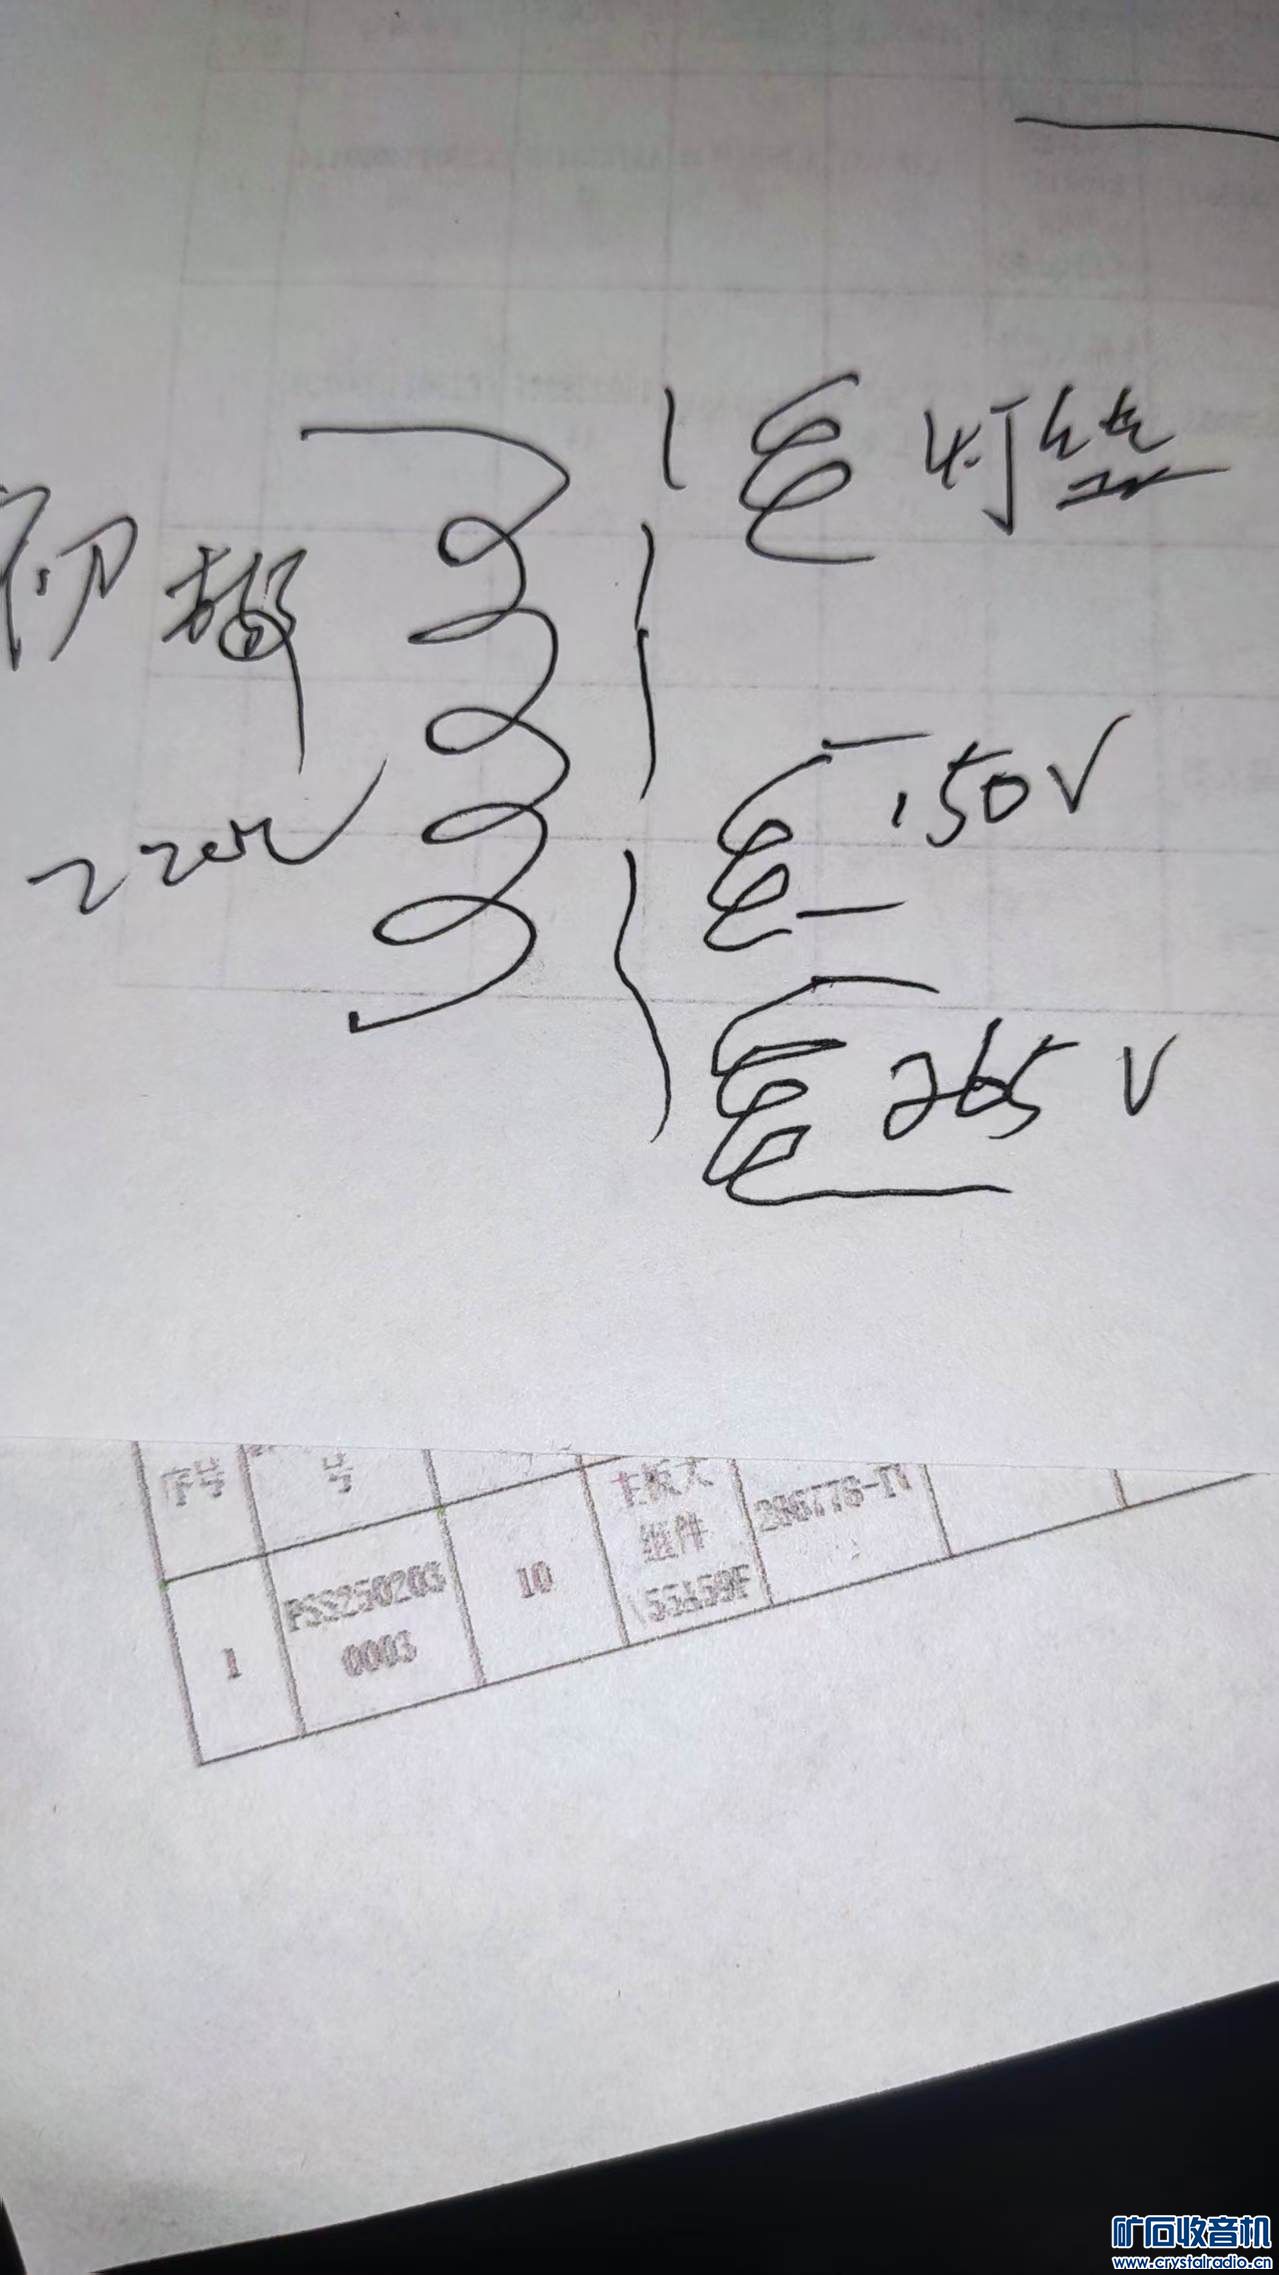 灯丝
初
220V
150V
265V
序号
号
主板大
组件
\55A59F
1
PSS250203
0003
10
矿石收音机
www.crystalradio.cn